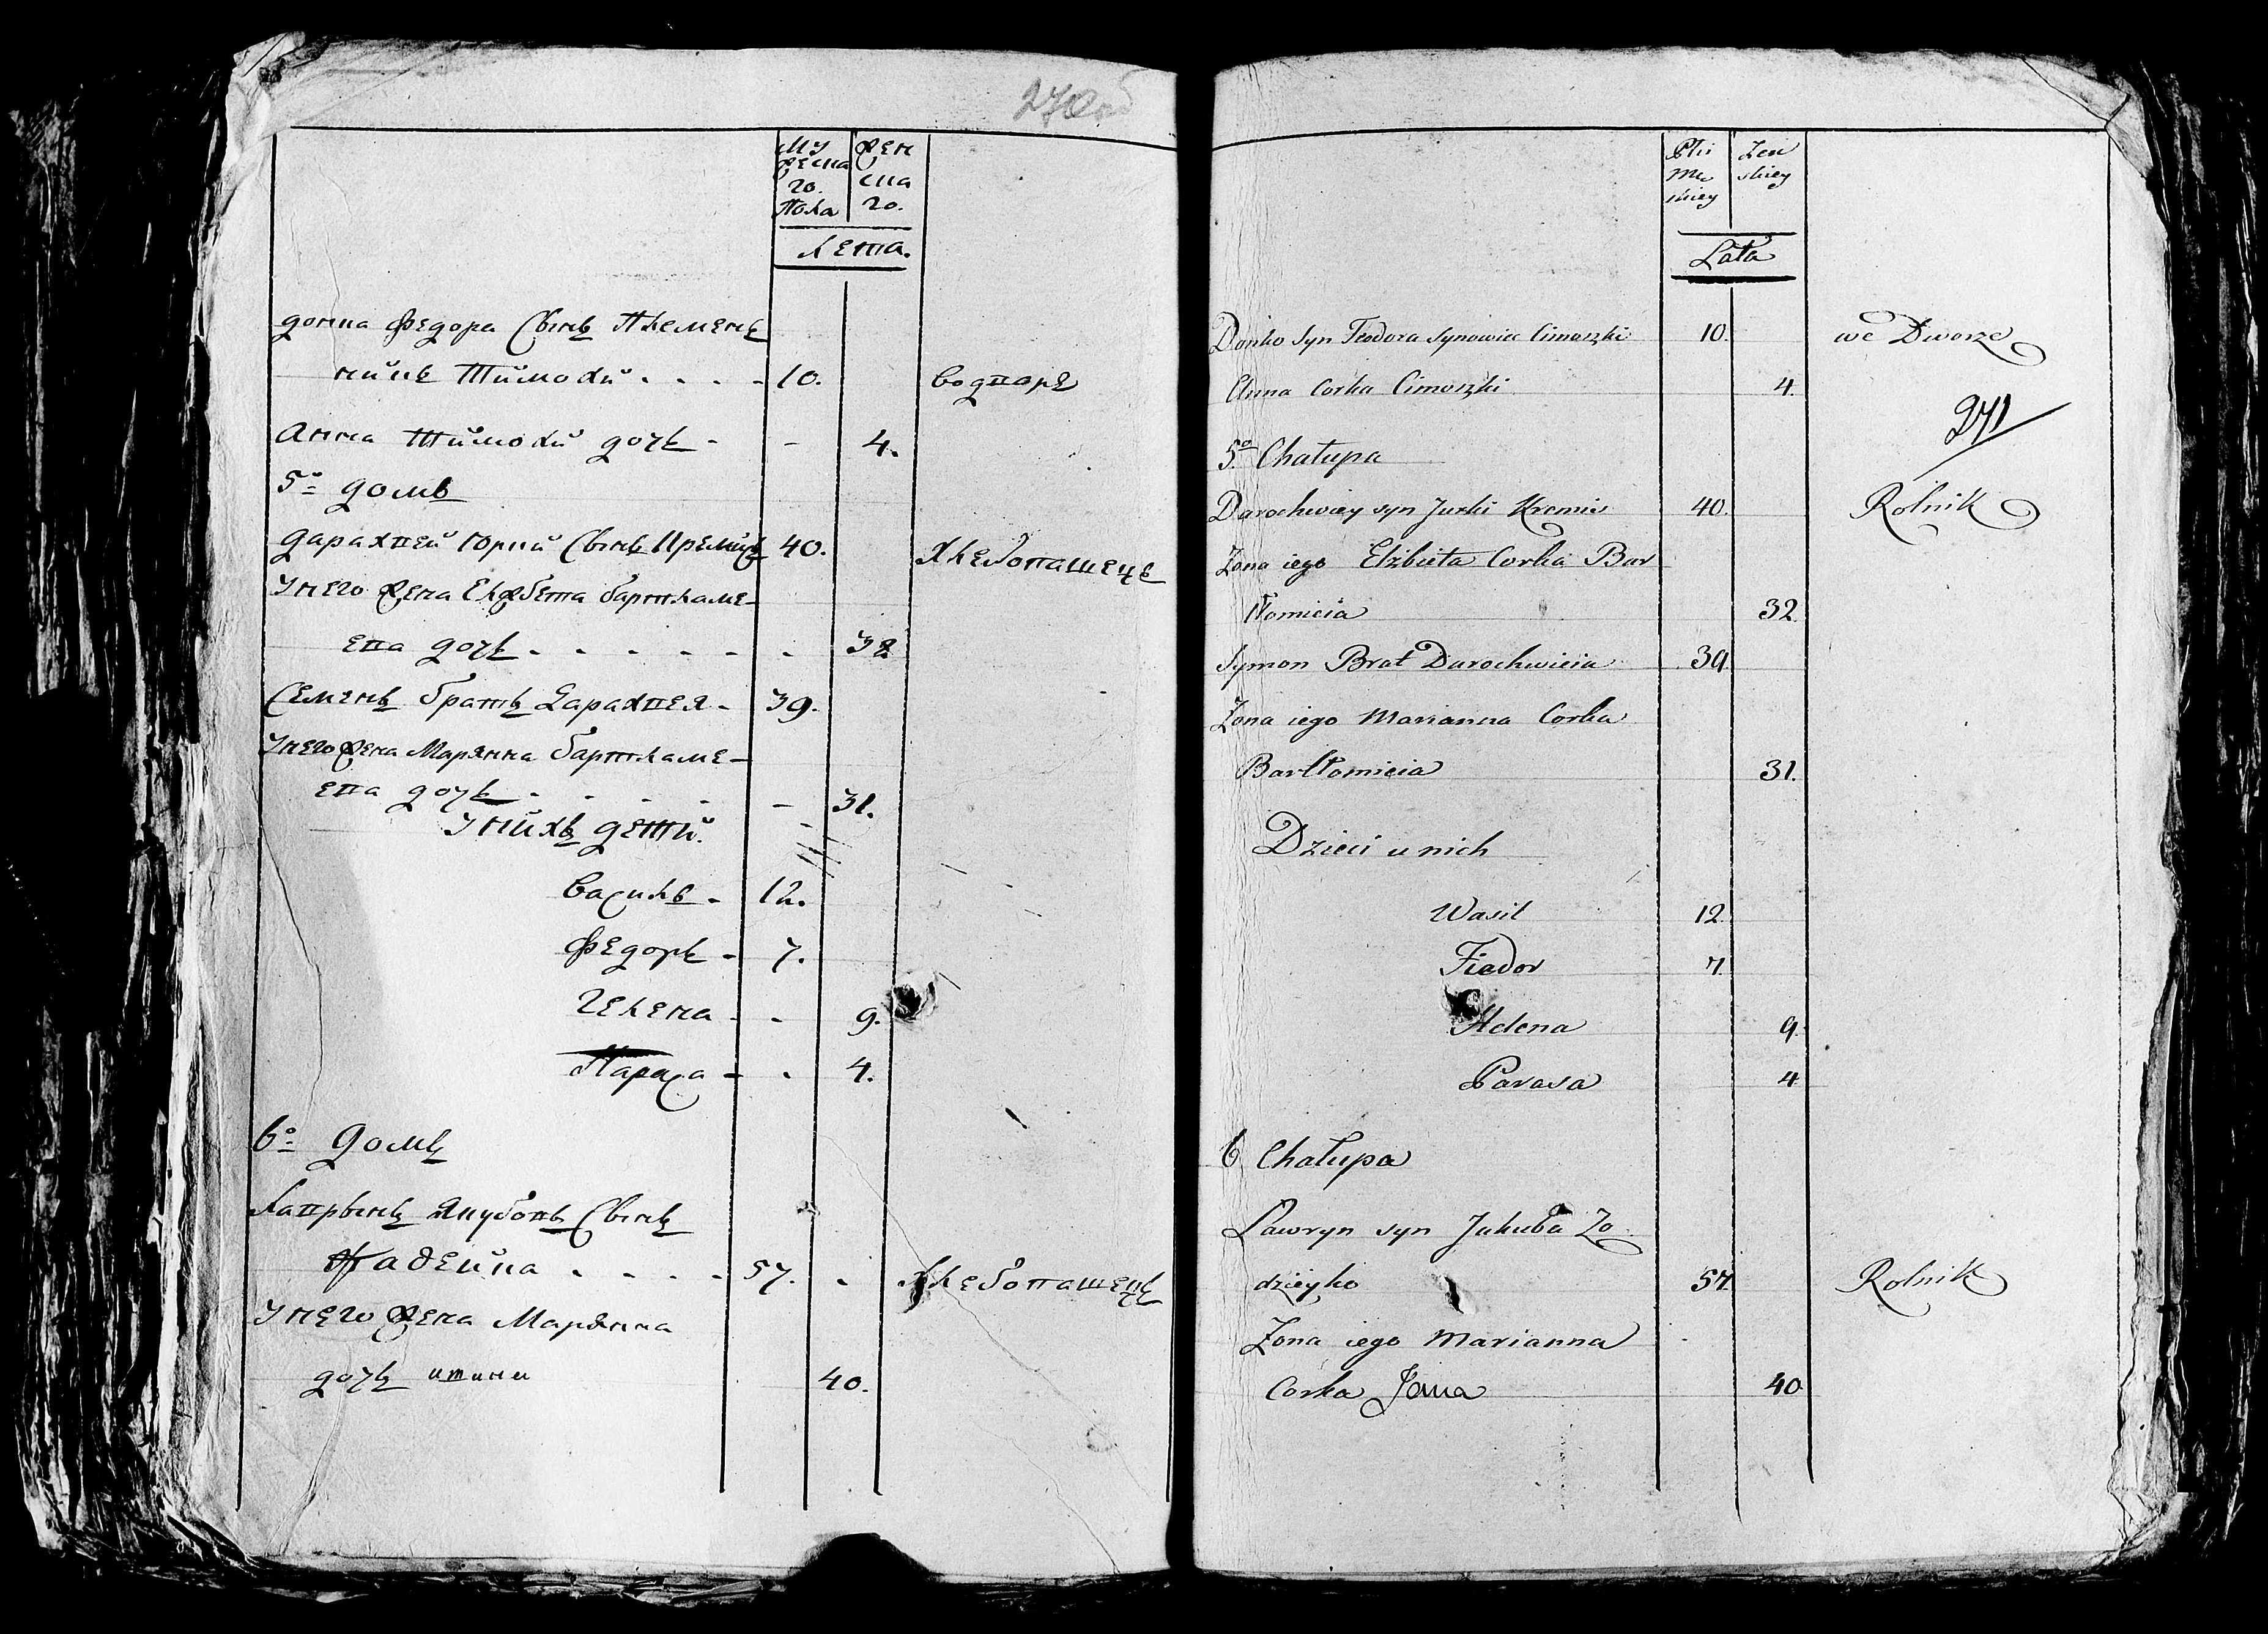 270об
Му
жеска
го.
Пола
Жен
ска
го.
Лета.
Донка Федора Сынъ Племен
никъ Тимохи . . . . 10. во дворе
Анна Тимохи дочь - - 4.
5о домъ
Дарахвей Юрки Сынъ Кремисъ 40. Хлебопашецъ
У него жена Елжбета бартламе-
ева дочь . . . . . . . 32
Семенъ братъ Дарахвея - 39.
У него жена Марянна бартламе-
ева дочь - . . . - 31.
У нихъ дети.
Василь - 12.
Федоръ - 7.
Гелена - - 9.
Параса - - 4.
6о Домъ
Лаврынъ Якубовъ Сынъ
Жадейка . . . . 57. - Хлебопашецъ
У него жена Марянна
дочь 40.
Płci
Mę
skiey
Żeń
skiey
Lata
Donko syn Teodora synowiec Cimoszki 10. we Dworze
Anna Corka Cimoszki 4.
271
5o Chałupa
Darochwiey syn Jurki Kremis 40. Rolnik
Żona iego Elżbieta Corka Bar
tłomieia 32
Symon Brat Darochwieia 39
Żona iego Marianna Corka
Bartłomieia 31.
Dzieci u nich
Wasil 12.
Fiedor 7.
Helena 9.
Parasa 4
6 Chałupa
Ławryn syn Jakuba Zo
dzieyko 57. Rolnik
Żona iego Marianna
Corka Jana 40